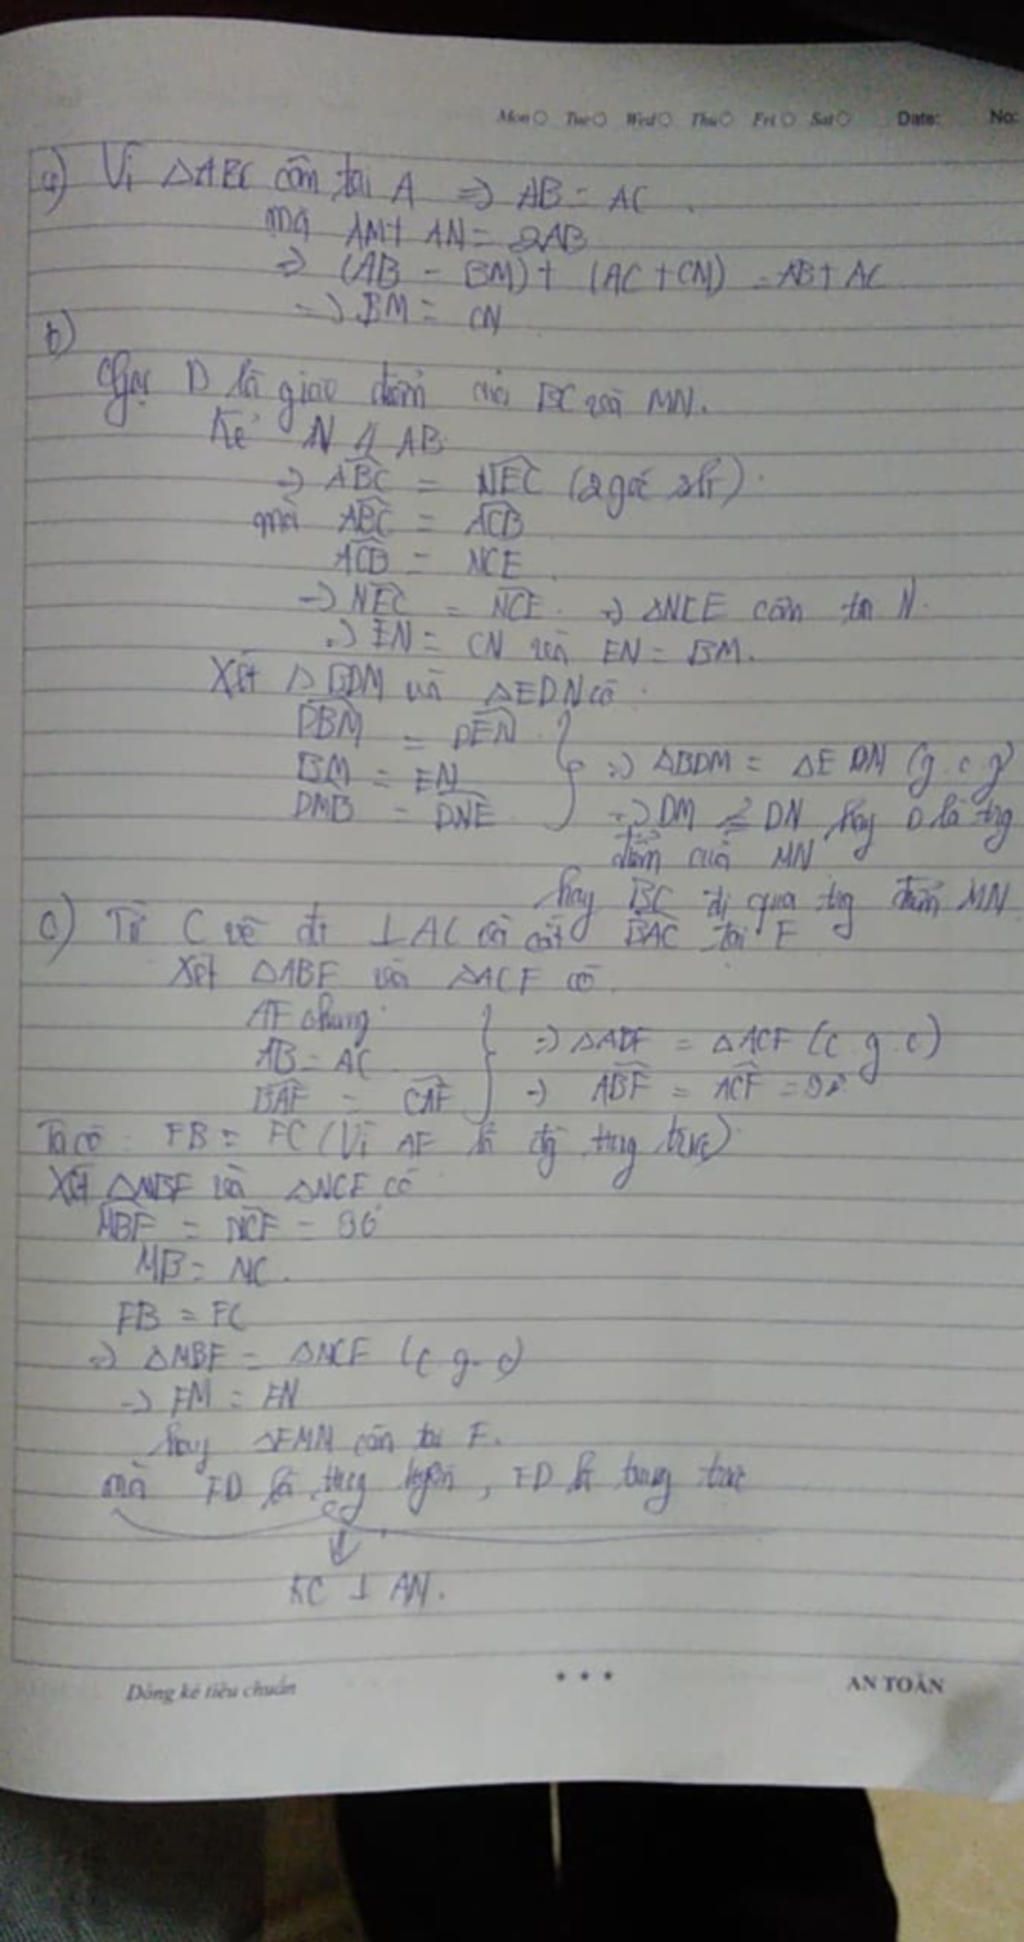 Mon Tue Wed Thu Fri Sat Date: No:
a) Vì △ABC cân tại A => AB = AC.
mà AM + AN = 2AB
=> (AB - BM) + (AC + CN) = AB + AC
=> BM = CN
b)
Gọi D là giao điểm của BC và MN.
Kẻ N // AB
=> ABC = NEC (2 góc slt).
mà ABC = ACB
ACB = NCE
=> NEC = NCE. => △NCE cân tại N.
=> EN = CN và EN = BM.
Xét △BDM và △EDN có
DBM = DEN
BM = EN => △BDM = △EDN (g.c.g)
DMB = DNE => DM = DN hay D là trg
điểm của MN
hay BC đi qua trg điểm MN
c) Từ C vẽ đt ⊥ AC và cắt BAC tại F
Xét △ABF và △ACF có.
AF chung
AB = AC => △ABF = △ACF (c.g.c)
BAF = CAF => ABF = ACF = 90°
Ta có: FB = FC (Vì AF là đg trug trực)
Xét △MBF và △NCF có
MBF = NCF = 90°
MB = NC.
FB = FC
=> △MBF = △NCF (c.g.c)
=> FM = FN
hay △FMN cân tại F.
mà FD là trug tuyến, FD là trung trực
KC ⊥ AN.
Dòng kẻ tiêu chuẩn * * * AN TOÀN